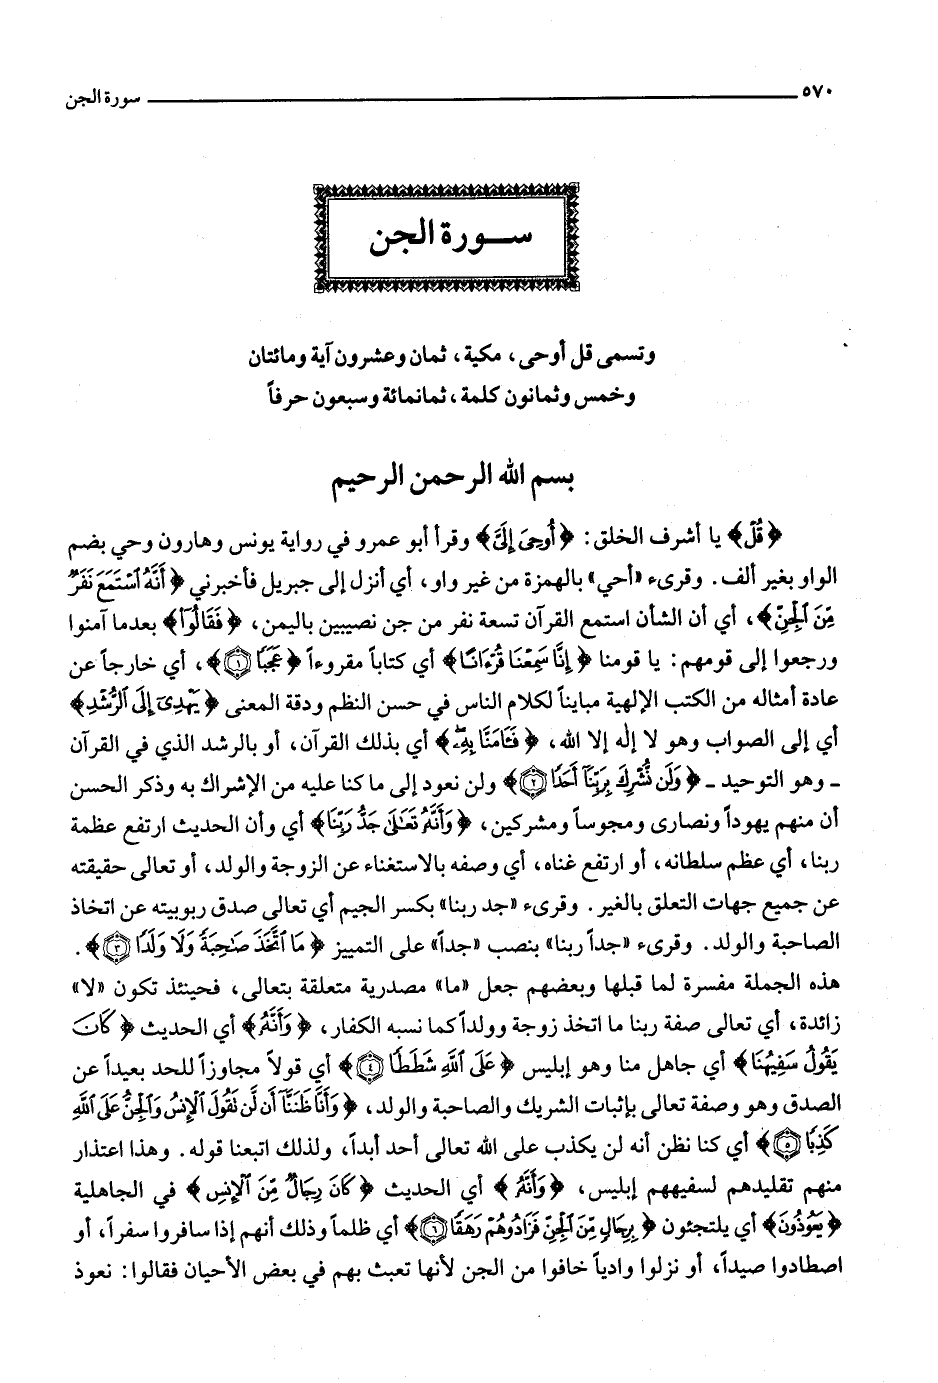 ٥٧٠ سورة الجن
ســورة الجن
وتسمى قل أوحى، مكية، ثمان وعشرون آية ومائتان
وخمس وثمانون كلمة، ثمانمائة وسبعون حرفاً
بسم الله الرحمن الرحيم
﴿قُلْ﴾ يا أشرف الخلق: ﴿أُوحِىَ إِلَىَّ﴾ وقرأ أبو عمرو في رواية يونس وهارون وحي بضم
الواو بغير ألف. وقرىء «أحي» بالهمزة من غير واو، أي أنزل إلى جبريل فأخبرني ﴿أَنَّهُ ٱسْتَمَعَ نَفَرٌ
مِّنَ ٱلْجِنِّ﴾، أي أن الشأن استمع القرآن تسعة نفر من جن نصيبين باليمن، ﴿فَقَالُوٓا۟﴾ بعدما آمنوا
ورجعوا إلى قومهم: يا قومنا ﴿إِنَّا سَمِعْنَا قُرْءَانًا﴾ أي كتاباً مقروءاً ﴿عَجَبًا ١﴾، أي خارجاً عن
عادة أمثاله من الكتب الإلهية مبايناً لكلام الناس في حسن النظم ودقة المعنى ﴿يَهْدِىٓ إِلَى ٱلرُّشْدِ﴾
أي إلى الصواب وهو لا إله إلا الله، ﴿فَـَٔامَنَّا بِهِۦ﴾ أي بذلك القرآن، أو بالرشد الذي في القرآن
ـ وهو التوحيد ـ ﴿وَلَن نُّشْرِكَ بِرَبِّنَآ أَحَدًا ٢﴾ ولن نعود إلى ما كنا عليه من الإشراك به وذكر الحسن
أن منهم يهوداً ونصارى ومجوساً ومشركين، ﴿وَأَنَّهُۥ تَعَٰلَىٰ جَدُّ رَبِّنَا﴾ أي وأن الحديث ارتفع عظمة
ربنا، أي عظم سلطانه، أو ارتفع غناه، أي وصفه بالاستغناء عن الزوجة والولد، أو تعالى حقيقته
عن جميع جهات التعلق بالغير. وقرىء «جد ربنا» بكسر الجيم أي تعالى صدق ربوبيته عن اتخاذ
الصاحبة والولد. وقرىء «جداً ربنا» بنصب «جداً» على التمييز ﴿مَا ٱتَّخَذَ صَٰحِبَةً وَلَا وَلَدًا ٣﴾.
هذه الجملة مفسرة لما قبلها وبعضهم جعل «ما» مصدرية متعلقة بتعالى، فحينئذ تكون «لا»
زائدة، أي تعالى صفة ربنا ما اتخذ زوجة وولداً كما نسبه الكفار، ﴿وَأَنَّهُۥ﴾ أي الحديث ﴿كَانَ
يَقُولُ سَفِيهُنَا﴾ أي جاهل منا وهو إبليس ﴿عَلَى ٱللَّهِ شَطَطًا ٤﴾ أي قولاً مجاوزاً للحد بعيداً عن
الصدق وهو وصفة تعالى بإثبات الشريك والصاحبة والولد، ﴿وَأَنَّا ظَنَنَّآ أَن لَّن تَقُولَ ٱلْإِنسُ وَٱلْجِنُّ عَلَى ٱللَّهِ
كَذِبًا ٥﴾ أي كنا نظن أنه لن يكذب على الله تعالى أحد أبداً، ولذلك اتبعنا قوله. وهذا اعتذار
منهم تقليدهم لسفيههم إبليس، ﴿وَأَنَّهُۥ﴾ أي الحديث ﴿كَانَ رِجَالٌ مِّنَ ٱلْإِنسِ﴾ في الجاهلية
﴿يَعُوذُونَ﴾ أي يلتجئون ﴿بِرِجَالٍ مِّنَ ٱلْجِنِّ فَزَادُوهُمْ رَهَقًا ٦﴾ أي ظلماً وذلك أنهم إذا سافروا سفراً، أو
اصطادوا صيداً، أو نزلوا وادياً خافوا من الجن لأنها تعبث بهم في بعض الأحيان فقالوا: نعوذ